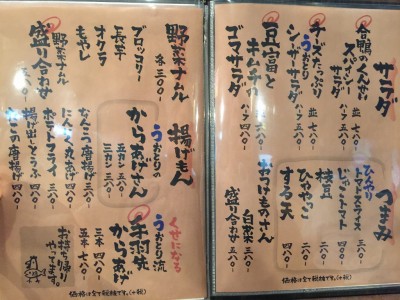 サラダ
合鴨のくんせい
スパイシー
サラダ
並 七八〇-
ハーフ 四八〇-
チーズたっぷり
うおとり
シーザーサラダ
並 六八〇-
ハーフ 三八〇-
豆富と
キムチの
ゴマサラダ
並 六八〇-
ハーフ 三八〇-
つまみ
ひんやり
トマトスライス 三八〇-
じゃこトマト 四八〇-
枝豆 三八〇-
ひややっこ 三八〇-
する天 四八〇-
おつけものさん
白菜 三八〇-
盛り合わせ 五八〇-
価格は全て税抜です。(+税)
野菜ナムル
各 三〇〇-
ブロッコリー
長芋
オクラ
もやし
野菜ナムル
盛り合わせ
揚げもん
うおとりの
からあげさん
五カン 五八〇-
三カン 三八〇-
なんこつ唐揚げ
にんにく丸あげ 四〇〇-
ポテトフライ 三五〇-
揚げ出しとうふ 四八〇-
たこの唐揚げ
くせになる
うおとり流
手羽先
からあげ
三本 四八〇-
五本 七八〇-
お持ち帰り
やってます。
価格は全て税抜です。(+税)